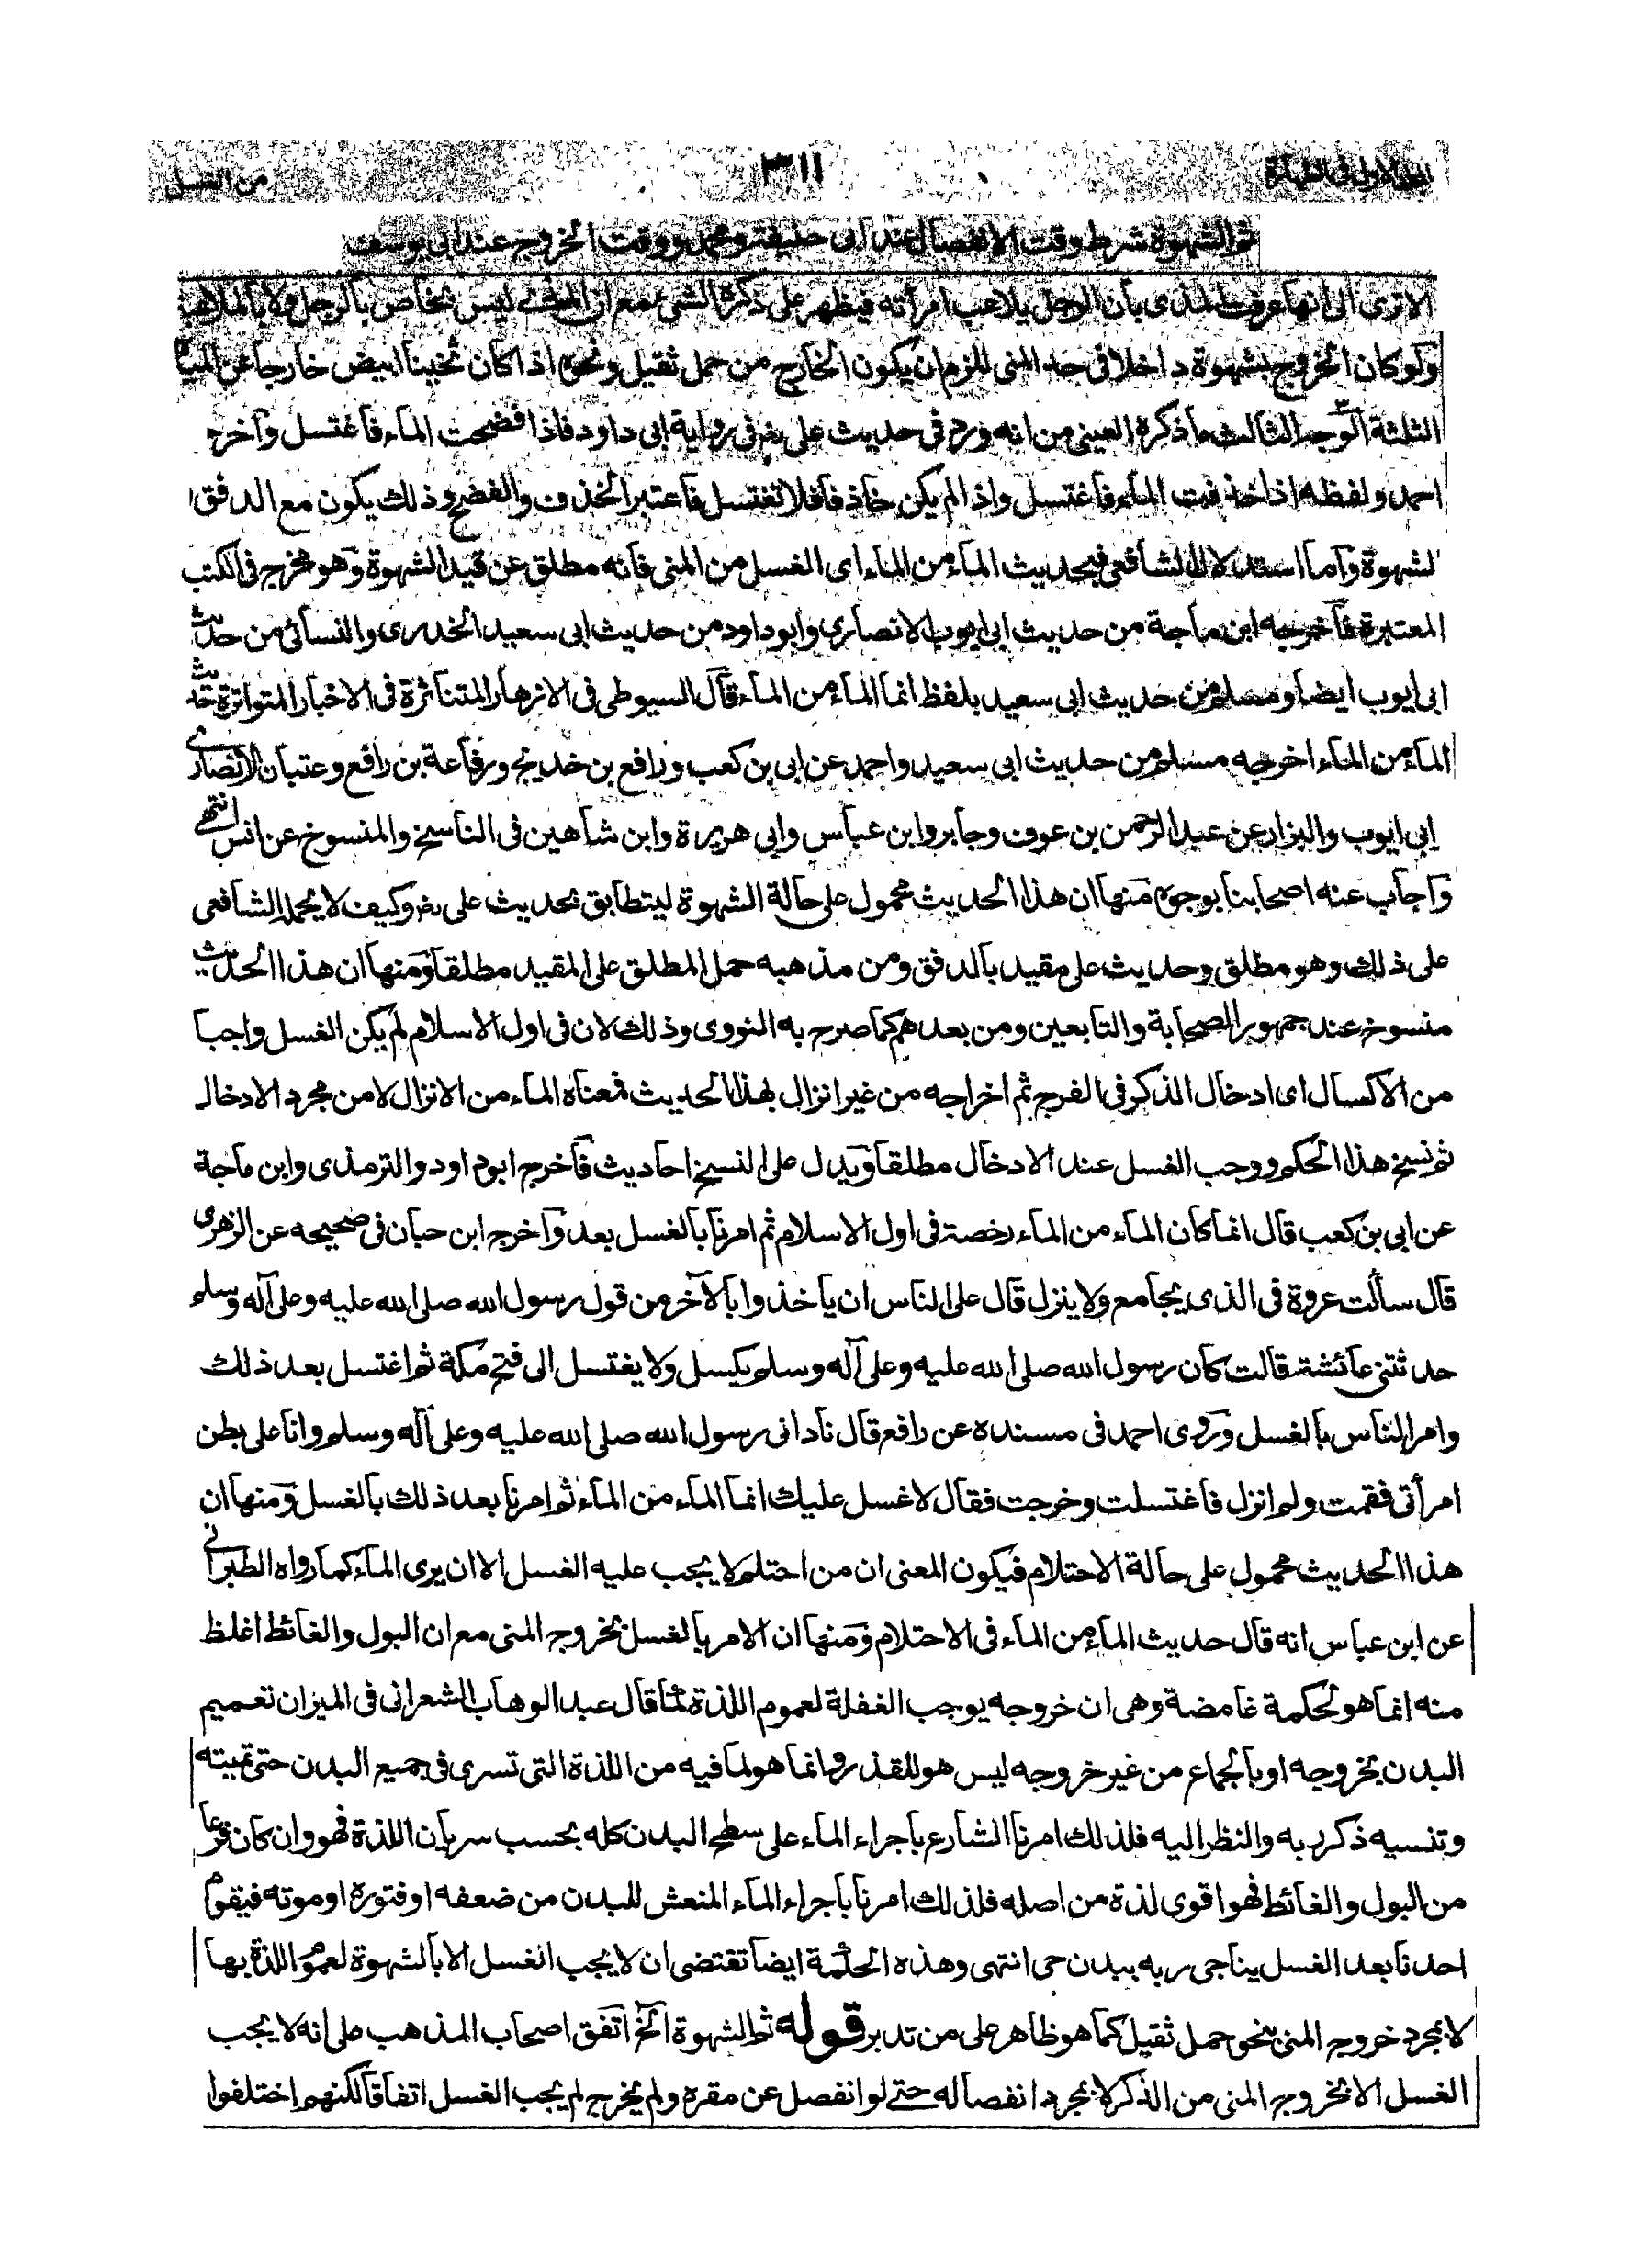 ٣١١
من الغسل
ثم الشهوة شرط وقت الانفصال عند ابى حنيفة ومحمد ووقت الخروج عند ابى يوسف
الا ترى الى انها عرفت المذى بان الرجل يلاعب امرأته فيظهر على ذكره الشئ مع ان المذى ليس بخاص بالرجل ولا بالملاعبة
ولو كان الخروج بشهوة داخلا فى حد المنى للزم ان يكون الخارج من حمل ثقيل ونحوه اذا كان ثخينا ابيض خارجا عن المياه
الثلثة الوجه الثالث ما ذكره العينى من انه ورد فى حديث على رض فى رواية ابى داود فاذا فضحت الماء فاغتسل وآخرج
احمد ولفظه اذا خذفت الماء فاغتسل واذا لم يكن خاذفا فلا تغتسل فاعتبر الخذف والفضخ وذلك يكون مع الدفق
لشهوة وآما استدلال الشافعى فبحديث الماء من الماء اى الغسل من المنى فانه مطلق عن قيد الشهوة وهو مخرج فى الكتب
المعتبرة فآخرجه ابن ماجة من حديث ابى ايوب الانصارى وابو داود من حديث ابى سعيد الخدرى والنسائى من حديث
ابى ايوب ايضا ومسلم من حديث ابى سعيد بلفظ انما الماء من الماء قال السيوطى فى الازهار المتناثرة فى الاخبار المتواترة حديث
الماء من الماء اخرجه مسلم من حديث ابى سعيد واحمد عن ابى بن كعب ورافع بن خديج ورفاعة بن رافع وعتبان الانصارى
ابى ايوب والبزار عن عبد الرحمن بن عوف وجابر وابن عباس وابى هريرة وابن شاهين فى الناسخ والمنسوخ عن انس انتهى
وآجاب عنه اصحابنا بوجوه منها ان هذا الحديث محمول على حالة الشهوة ليتطابق بحديث على رض وكيف لا يحمله الشافعى
على ذلك وهو مطلق وحديث على مقيد بالدفق ومن مذهبه حمل المطلق على المقيد مطلقا ومنها ان هذا الحديث
منسوخ عند جمهور الصحابة والتابعين ومن بعدهم كما صرح به النووى وذلك لان فى اول الاسلام لم يكن الغسل واجبا
من الاكسال اى ادخال الذكر فى الفرج ثم اخراجه من غير انزال لهذا الحديث فمعناه الماء من الانزال لا من مجرد الادخال
ثم نسخ هذا الحكم ووجب الغسل عند الادخال مطلقا ويدل على النسخ احاديث فآخرج ابو داود والترمذى وابن ماجة
عن ابى بن كعب قال انما كان الماء من الماء رخصة فى اول الاسلام ثم امرنا بالغسل بعد وآخرج ابن حبان فى صحيحه عن الزهرى
قال سألت عروة فى الذى يجامع ولا ينزل قال على الناس ان ياخذوا بالآخر من قول رسول الله صلى الله عليه وعلى آله وسلم
حدثتنى عائشة قالت كان رسول الله صلى الله عليه وعلى آله وسلم يكسل ولا يغتسل الى فتح مكة ثم اغتسل بعد ذلك
وامر الناس بالغسل وروى احمد فى مسنده عن رافع قال نادانى رسول الله صلى الله عليه وعلى آله وسلم وانا على بطن
امرأتى فقمت ولم انزل فاغتسلت وخرجت فقال لا غسل عليك انما الماء من الماء ثم امرنا بعد ذلك بالغسل ومنها ان
هذا الحديث محمول على حالة الاحتلام فيكون المعنى ان من احتلم لا يجب عليه الغسل الا ان يرى الماء كما رواه الطبرانى
عن ابن عباس انه قال حديث الماء من الماء فى الاحتلام ومنها ان الامر بالغسل بخروج المنى مع ان البول والغائط اغلظ
منه انما هو لحكمة غامضة وهى ان خروجه يوجب الغفلة لعموم اللذة قال عبد الوهاب الشعرانى فى الميزان تعميم
البدن بخروجه او بالجماع من غير خروجه ليس هو للقذر وانما هو لما فيه من اللذة التى تسرى فى جميع البدن حتى تميته
وتنسيه ذكر ربه والنظر اليه فلذلك امرنا الشارع باجراء الماء على سطح البدن كله بحسب سريان اللذة فهو وان كان فرعا
من البول والغائط فهو اقوى لذة من اصله فلذلك امرنا باجراء الماء المنعش للبدن من ضعفه او فتوره او موته فيقوم
احدنا بعد الغسل يناجى ربه ببدن حى انتهى وهذه الحكمة ايضا تقتضى ان لا يجب الغسل الا بالشهوة لعموم اللذة بها
لا بمجرد خروج المنى بنحو حمل ثقيل كما هو ظاهر على من تدبر قوله ثم الشهوة الخ اتفق اصحاب المذهب على انه لا يجب
الغسل الا بخروج المنى من الذكر لا بمجرد انفصاله حتے لو انفصل عن مقره ولم يخرج لم يجب الغسل اتفاقا لكنهم اختلفوا